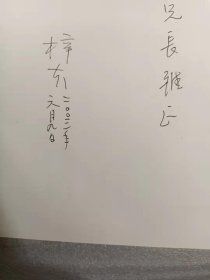 兄長雅正
梓东
二〇〇二年
六月九日